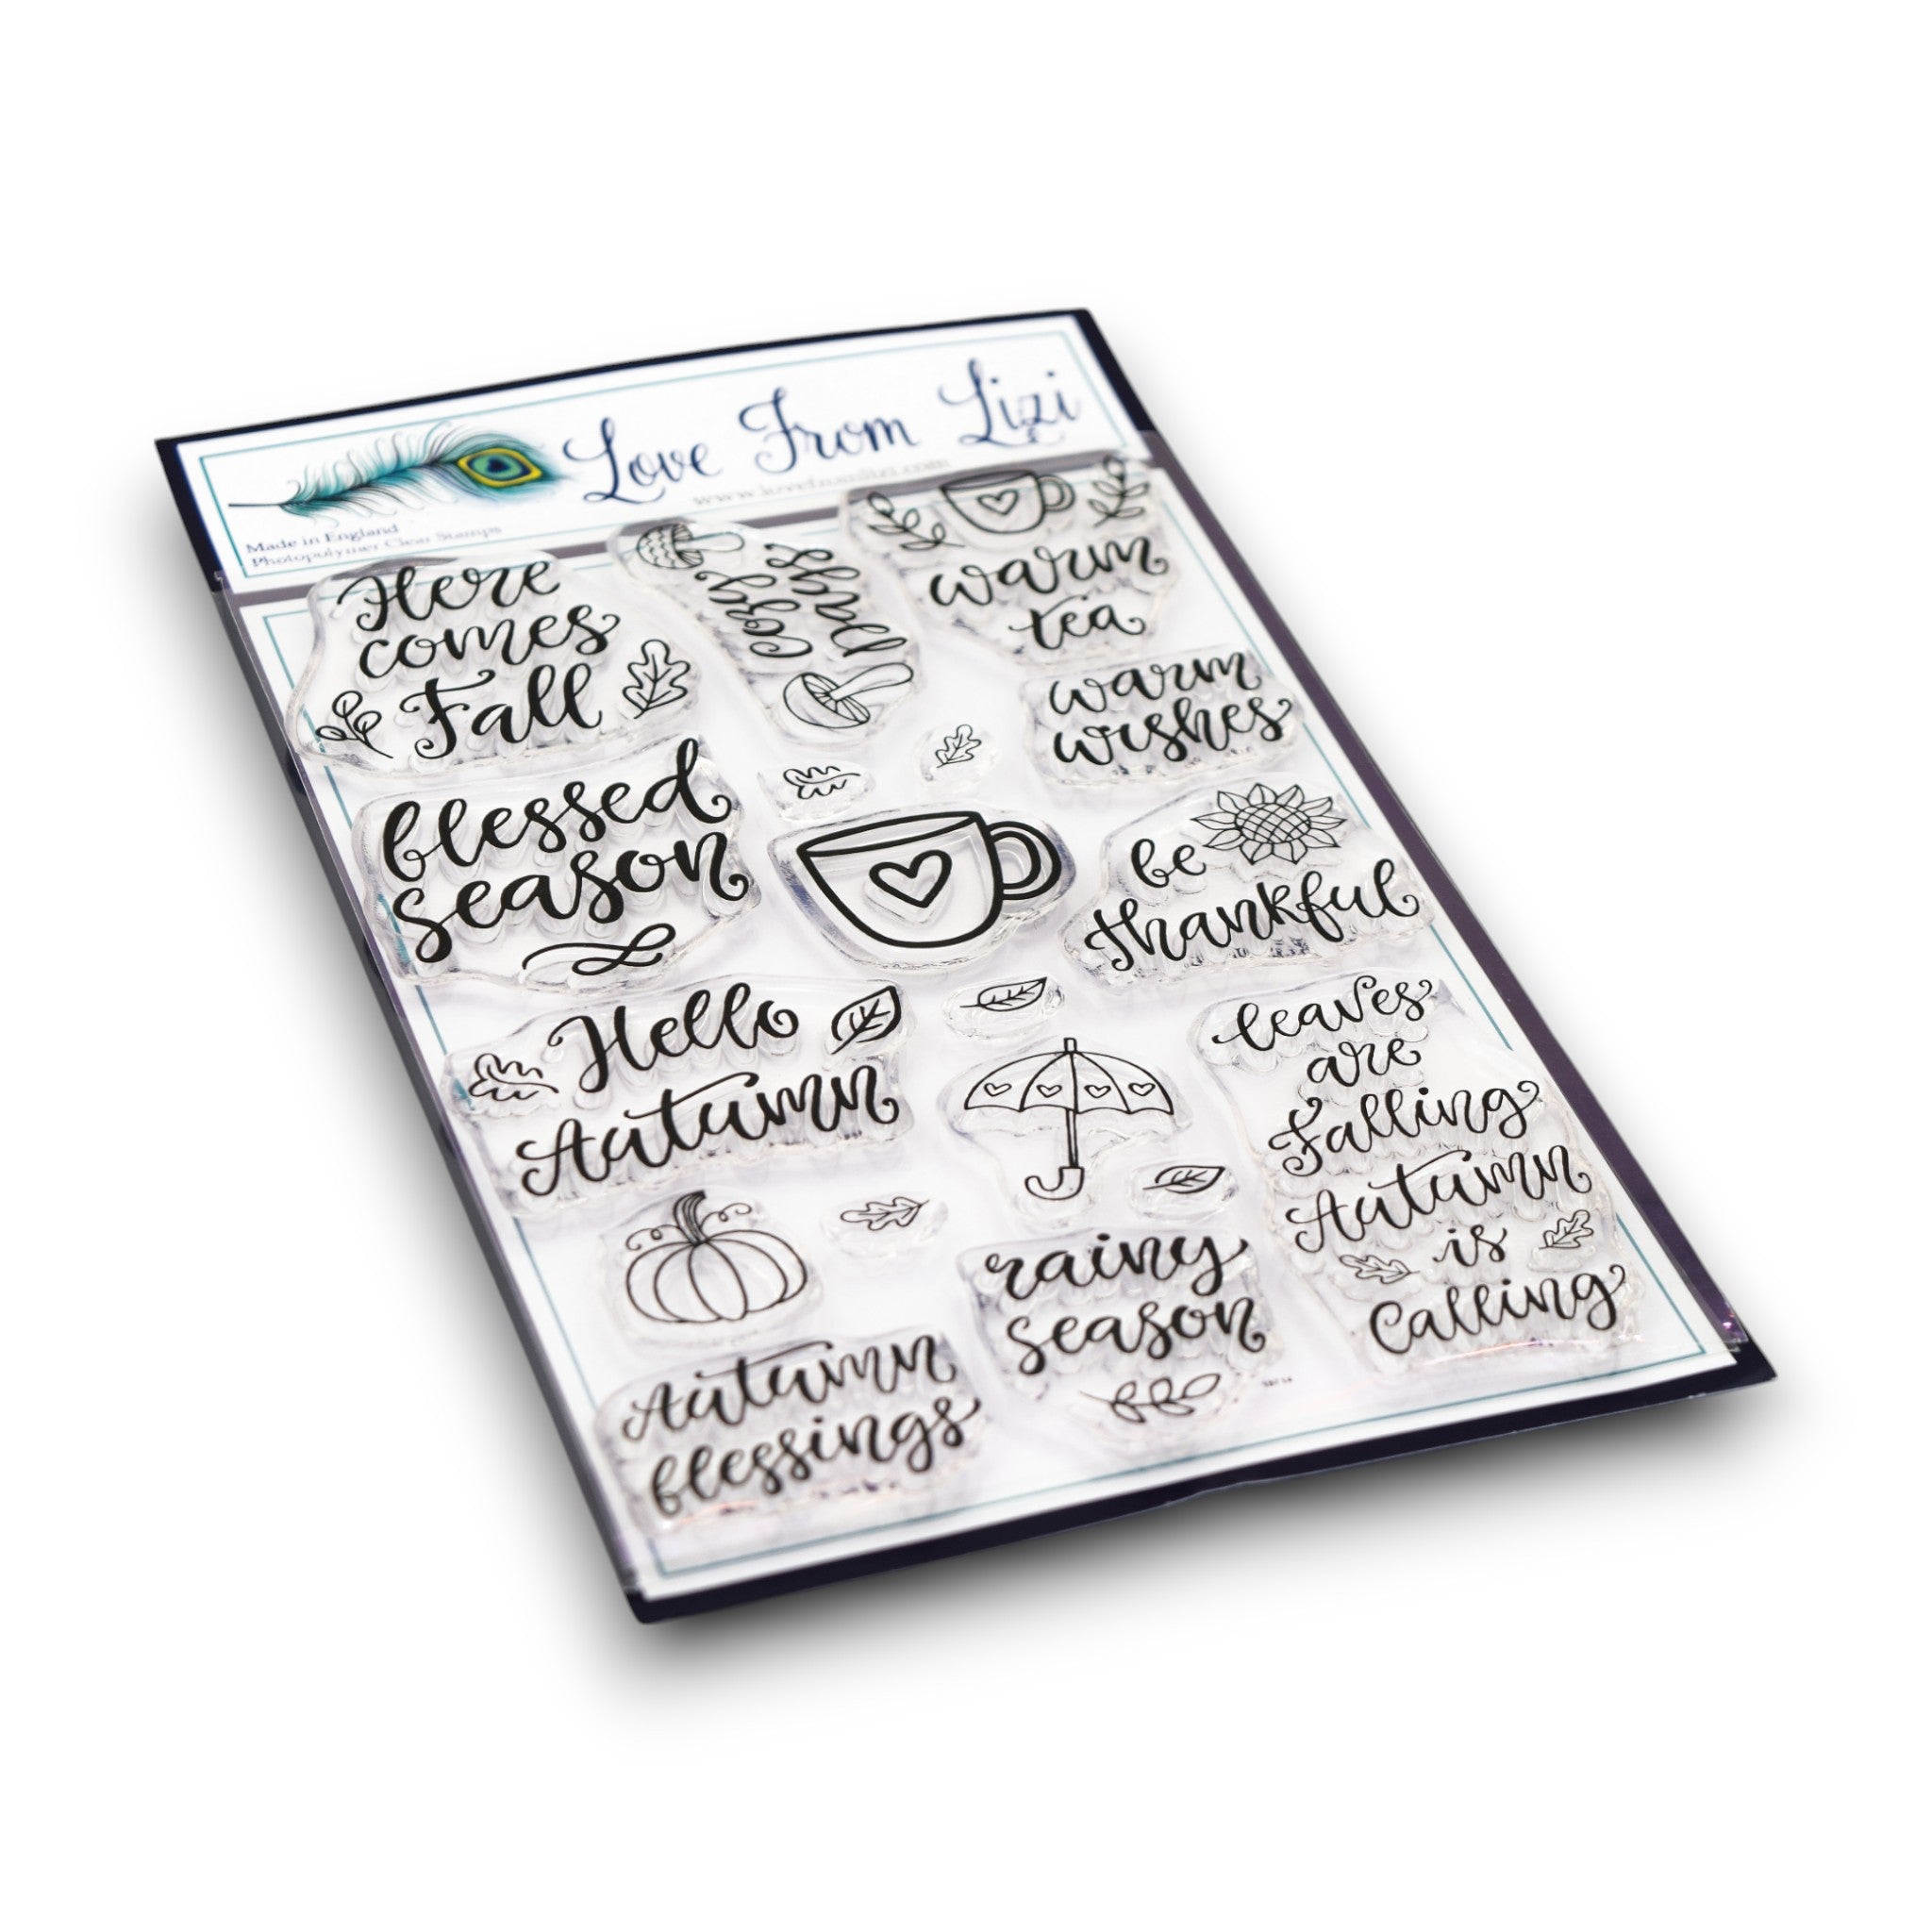 Love From Lizi
www.lovefromlizi.com
Made in England
Photopolymer Clear Stamps
Here
comes
Fall
Cozy
days
warm
tea
warm
wishes
blessed
season
be
thankful
Hello
Autumn
leaves
are
Falling
Autumn
is
Calling
rainy
season
Autumn
blessings